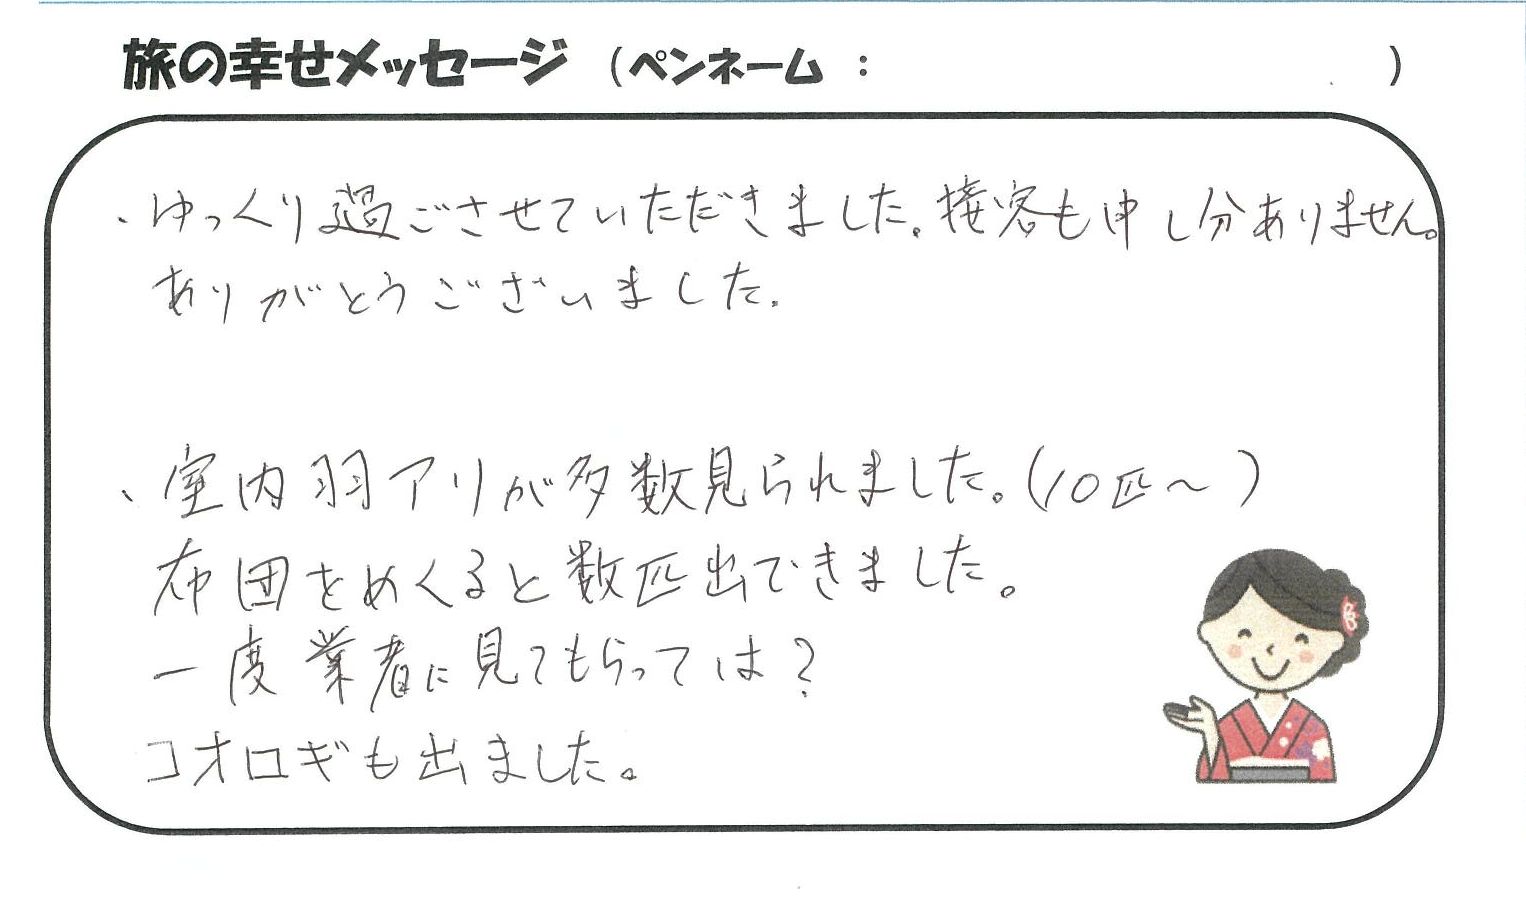 旅の幸せメッセージ （ペンネーム ： ）
・ゆっくり過ごさせていただきました。接客も申し分ありません。
ありがとうございました。
・室内羽アリが多数見られました。(10匹～)
布団をめくると数匹出できました。
一度業者に見てもらっては?
コオロギも出ました。